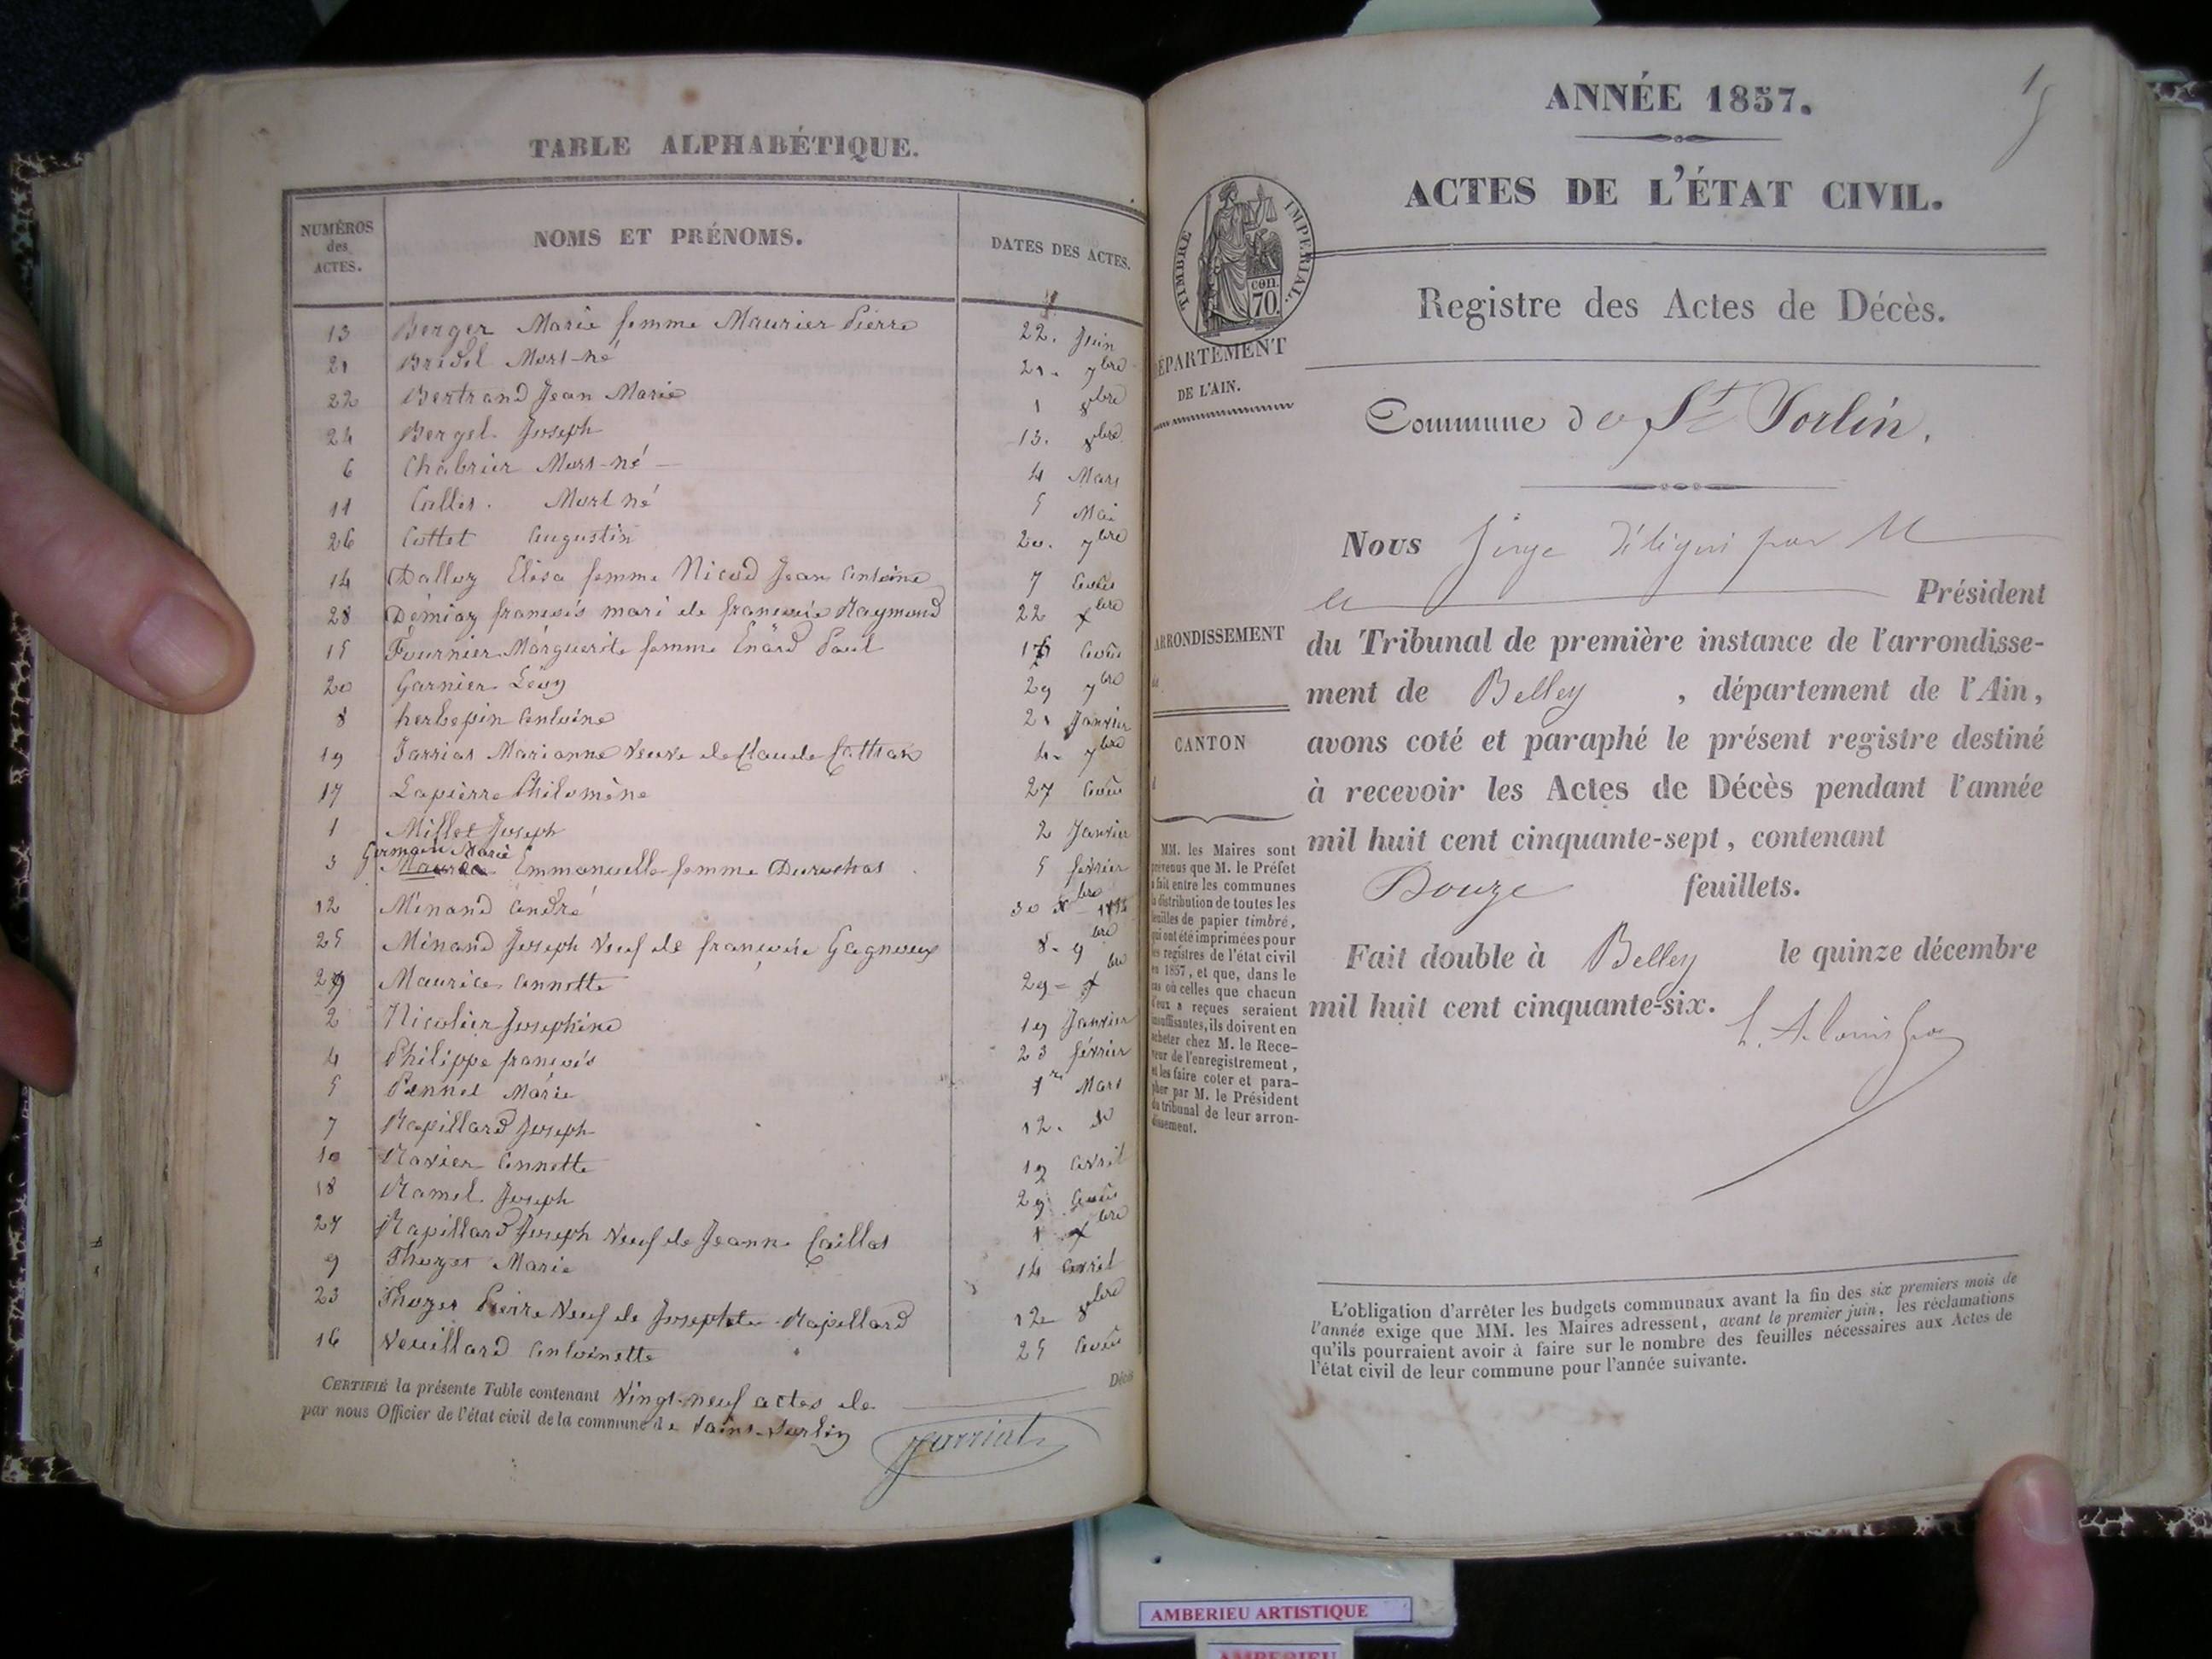 TABLE ALPHABÉTIQUE.
NUMÉROS des ACTES. NOMS ET PRÉNOMS. DATES DES ACTES.
13 Berger Marie femme Maurier Pierre 22. Juin
21 Bridel Mort-né 21. 7bre
22 Bertrand Jean Marie 1 8bre
24 Berget Joseph 13. 8bre
6 Chabrier Mort-né 4 Mars
11 Collet. Mort né 5 Mai
26 Cottet Augustin 20. 9bre
14 Dalloz Elisa femme Nicod Jean Antoine 7 Août
28 Démiaz françois mari de françoise Raymond 22 xbre
15 Fournier Marguerite femme Enard Paul 16 Août
20 Garnier Léon 29 7bre
8 herbepin Antoine 21 Janvier
19 Jarriat Marianne Veuve de Claude 4. 7bre
17 Lapierre Philomène 27 Août
1 Millet Joseph 2 Janvier
Germain Marie
3 Emmanuelle femme Durochat 5 février
12 Minand André 30 xbre
25 Minand Joseph Veuf de françoise Gagneux 8. 9bre
29 Maurice Annette 29 = xbre
2 Nicolier Josephine 19 Janvier
4 Philippe françois 23 février
5 Pennet Marie 1er Mars
7 Rapillard Joseph 12. do
10 Ravier Annette 19 Avril
18 Ramel Joseph 29 Août
27 Rapillard Joseph Veuf de Jeanne Caillat 1 xbre
9 Thozet Marie 14 Avril
23 Thozet Pierre Veuf de Josephte Rapillard 12 8bre
16 Veuillard Antoinette 25 Août
CERTIFIÉ la présente Table contenant Vingt-neuf actes de Décès
par nous Officier de l'état civil de la commune de Saint-Sorlin
Jarriat
1
ANNÉE 1857.
ACTES DE L'ÉTAT CIVIL.
TIMBRE IMPÉRIAL.
CEN. 70.
Registre des Actes de Décès.
DÉPARTEMENT
DE L'AIN.
Commune de St Sorlin.
Nous Juge délégué par M
le Président
ARRONDISSEMENT
du Tribunal de première instance de l'arrondisse-
ment de Belley , département de l'Ain,
CANTON
avons coté et paraphé le présent registre destiné
à recevoir les Actes de Décès pendant l'année
mil huit cent cinquante-sept, contenant
Douze feuillets.
Fait double à Belley le quinze décembre
mil huit cent cinquante-six.
MM. les Maires sont
prévenus que M. le Préfet
a fait entre les communes
la distribution de toutes les
feuilles de papier timbré,
qui ont été imprimées pour
les registres de l'état civil
en 1857, et que, dans le
cas où celles que chacun
d'eux a reçues seraient
insuffisantes, ils doivent en
acheter chez M. le Rece-
veur de l'enregistrement,
et les faire coter et para-
pher par M. le Président
du tribunal de leur arron-
dissement.
L'obligation d'arrêter les budgets communaux avant la fin des six premiers mois de
l'année exige que MM. les Maires adressent, avant le premier juin, les réclamations
qu'ils pourraient avoir à faire sur le nombre des feuilles nécessaires aux Actes de
l'état civil de leur commune pour l'année suivante.
AMBERIEU ARTISTIQUE
AMBERIEU